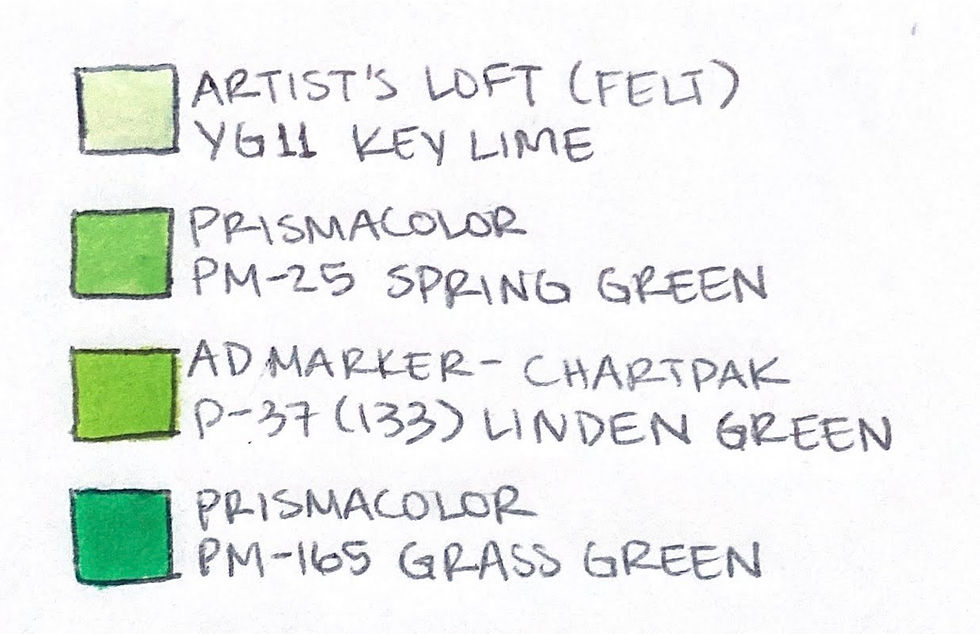 ARTIST'S LOFT (FELT)
YG11 KEY LIME
PRISMACOLOR
PM-25 SPRING GREEN
AD MARKER - CHARTPAK
P-37 (133) LINDEN GREEN
PRISMACOLOR
PM-165 GRASS GREEN